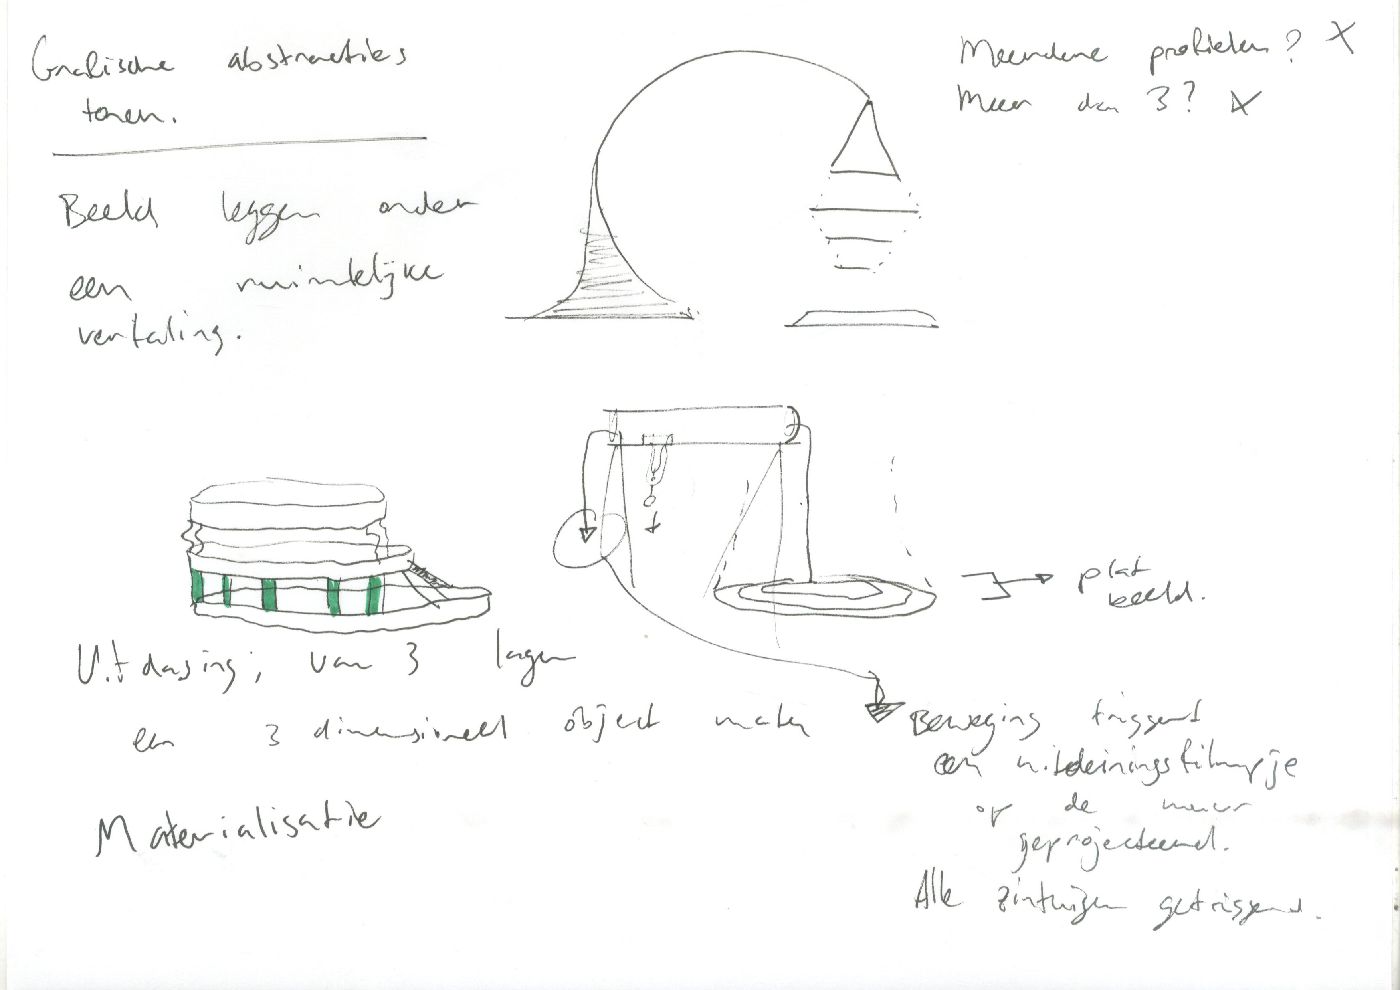 Grafische abstracties
tonen.
Beeld leggen onder
een ruimtelijke
vertaling.
Meerdere profielen? X
Meer dan 3? X
plat
beeld.
Uitdaging; van 3 lagen
een 3 dimensioneel object maken
Materialisatie
Beweging triggert
een uitdeiningsfilmpje
op de muur
geprojecteerd.
Alle zintuigen getriggerd.